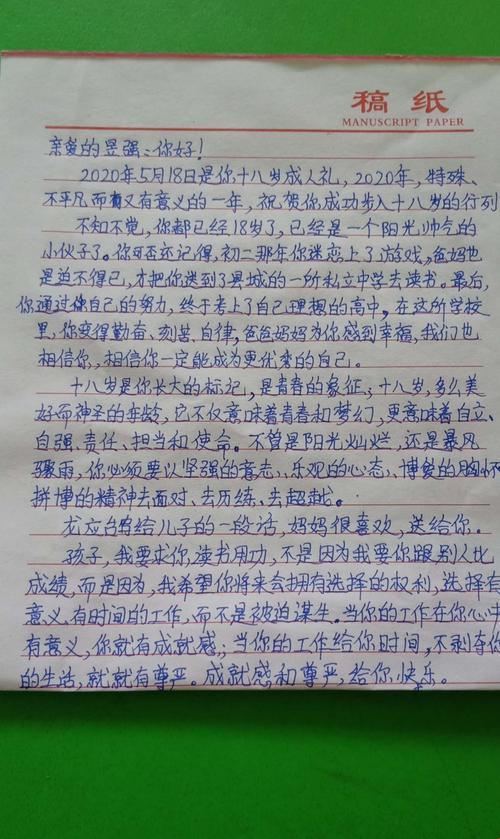 稿纸
MANUSCRIPT PAPER
亲爱的昱强:你好!
2020年5月18日是你十八岁成人礼,2020年,特殊、
不平凡而又有意义的一年,祝贺你成功步入十八岁的行列
不知不觉,你都已经18岁了,已经是一个阳光,帅气的
小伙子了。你可否还记得,初二那年你迷恋上了游戏,爸妈也
是迫不得已,才把你送到了县城的一所私立中学去读书。最后,
你通过你自己的努力,终于考上了自己理想的高中,在这所学校
里,你变得勤奋、刻苦、自律,爸爸妈妈为你感到幸福,我们也
相信你,相信你一定能成为更优秀的自己。
十八岁是你长大的标记,是青春的象征,十八岁,多么美
好而神圣的年龄,它不仅意味着青春和梦幻,更意味着自立、
自强、责任、担当和使命。不管是阳光灿烂,还是暴风
骤雨,你必须要以坚强的意志、乐观的心态、博爱的胸怀
拼博的精神去面对、去历练、去超越。
龙应台给儿子的一段话,妈妈很喜欢,送给你。
孩子,我要求你读书用功,不是因为我要你跟别人比
成绩,而是因为,我希望你将来会拥有选择的权利,选择有
意义、有时间的工作,而不是被迫谋生。当你的工作在你心中
有意义,你就有成就感,当你的工作给你时间,不剥夺你
的生活,就就有尊严。成就感和尊严,给你快乐。